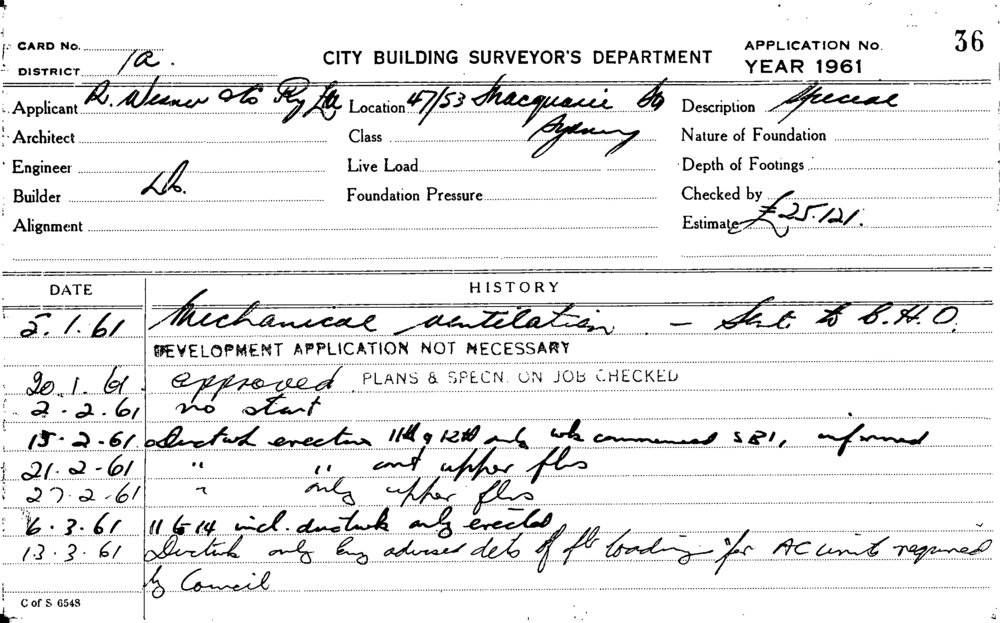 CARD No.
DISTRICT 1a.
CITY BUILDING SURVEYOR'S DEPARTMENT
APPLICATION No. 36
YEAR 1961
Applicant R. Wesner & Co Pty Ltd Location 47/53 Macquarie St Description Special
Architect Class Sydney Nature of Foundation
Engineer Live Load Depth of Footings
Builder Do. Foundation Pressure Checked by
Alignment Estimate £25.121.
DATE HISTORY
5.1.61 Mechanical ventilation. - Sent to C.H.O.
DEVELOPMENT APPLICATION NOT NECESSARY
20.1.61. approved PLANS & SPECN. ON JOB CHECKED
2-2.61 no start
15.2-61 Ductwk erection 11th & 12th only wk commenced SB1, informed
21.2-61 " " cont upper flrs
27.2-61 " only upper flrs
6.3.61 11 to 14 incl. ductwk only erected
13.3.61 Ductwk only Eng advised dets of flr loading for AC unit required
by Council
C of S 6548